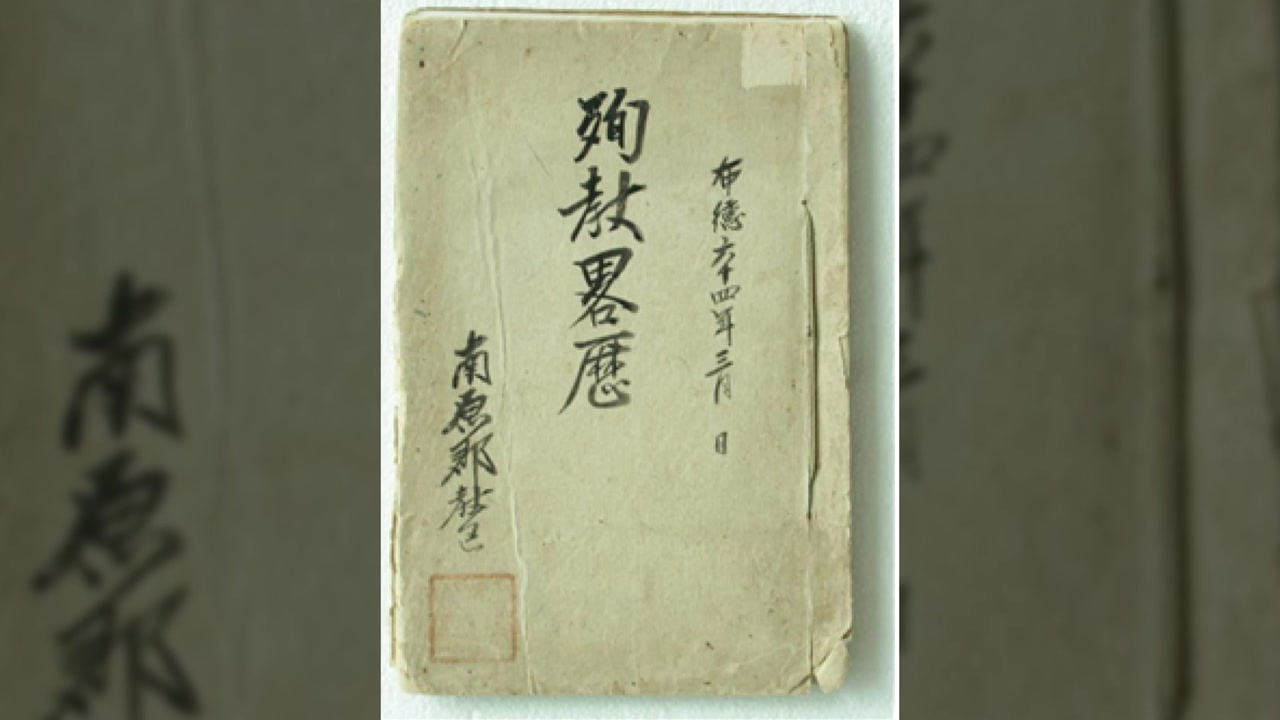 布德六十四年三月 日
殉教畧歷
南原郡教区